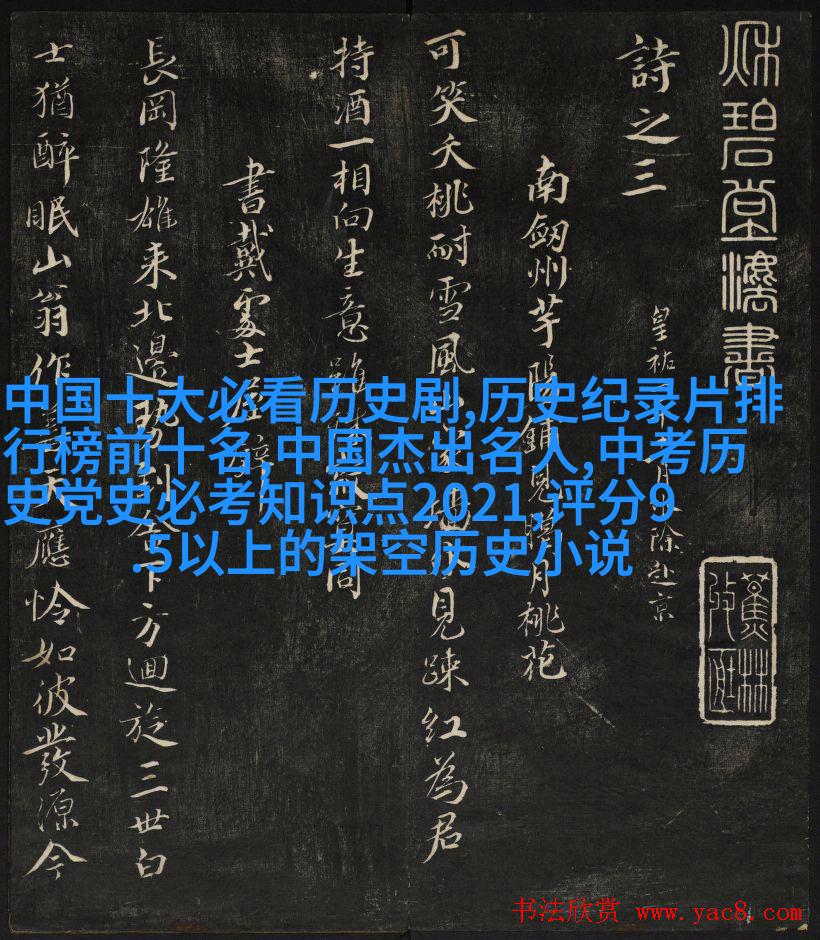 秋碧堂灋書
詩之三
皇祐 月 除赴京
南劒州芋陽鋪見臘月桃花
可笑夭桃耐雪風 見踈紅為君
持酒一相向生意雖 同
書戴處士
長岡隆雄来北邊勢到舍下方迴旋三世白
士猶醉眠山翁作 天應怜如彼發源今
蕉林
中国十大必看历史剧,历史纪录片排
行榜前十名,中国杰出名人,中考历
史党史必考知识点2021,评分9
.5以上的架空历史小说
书法欣赏 www.yac8.com